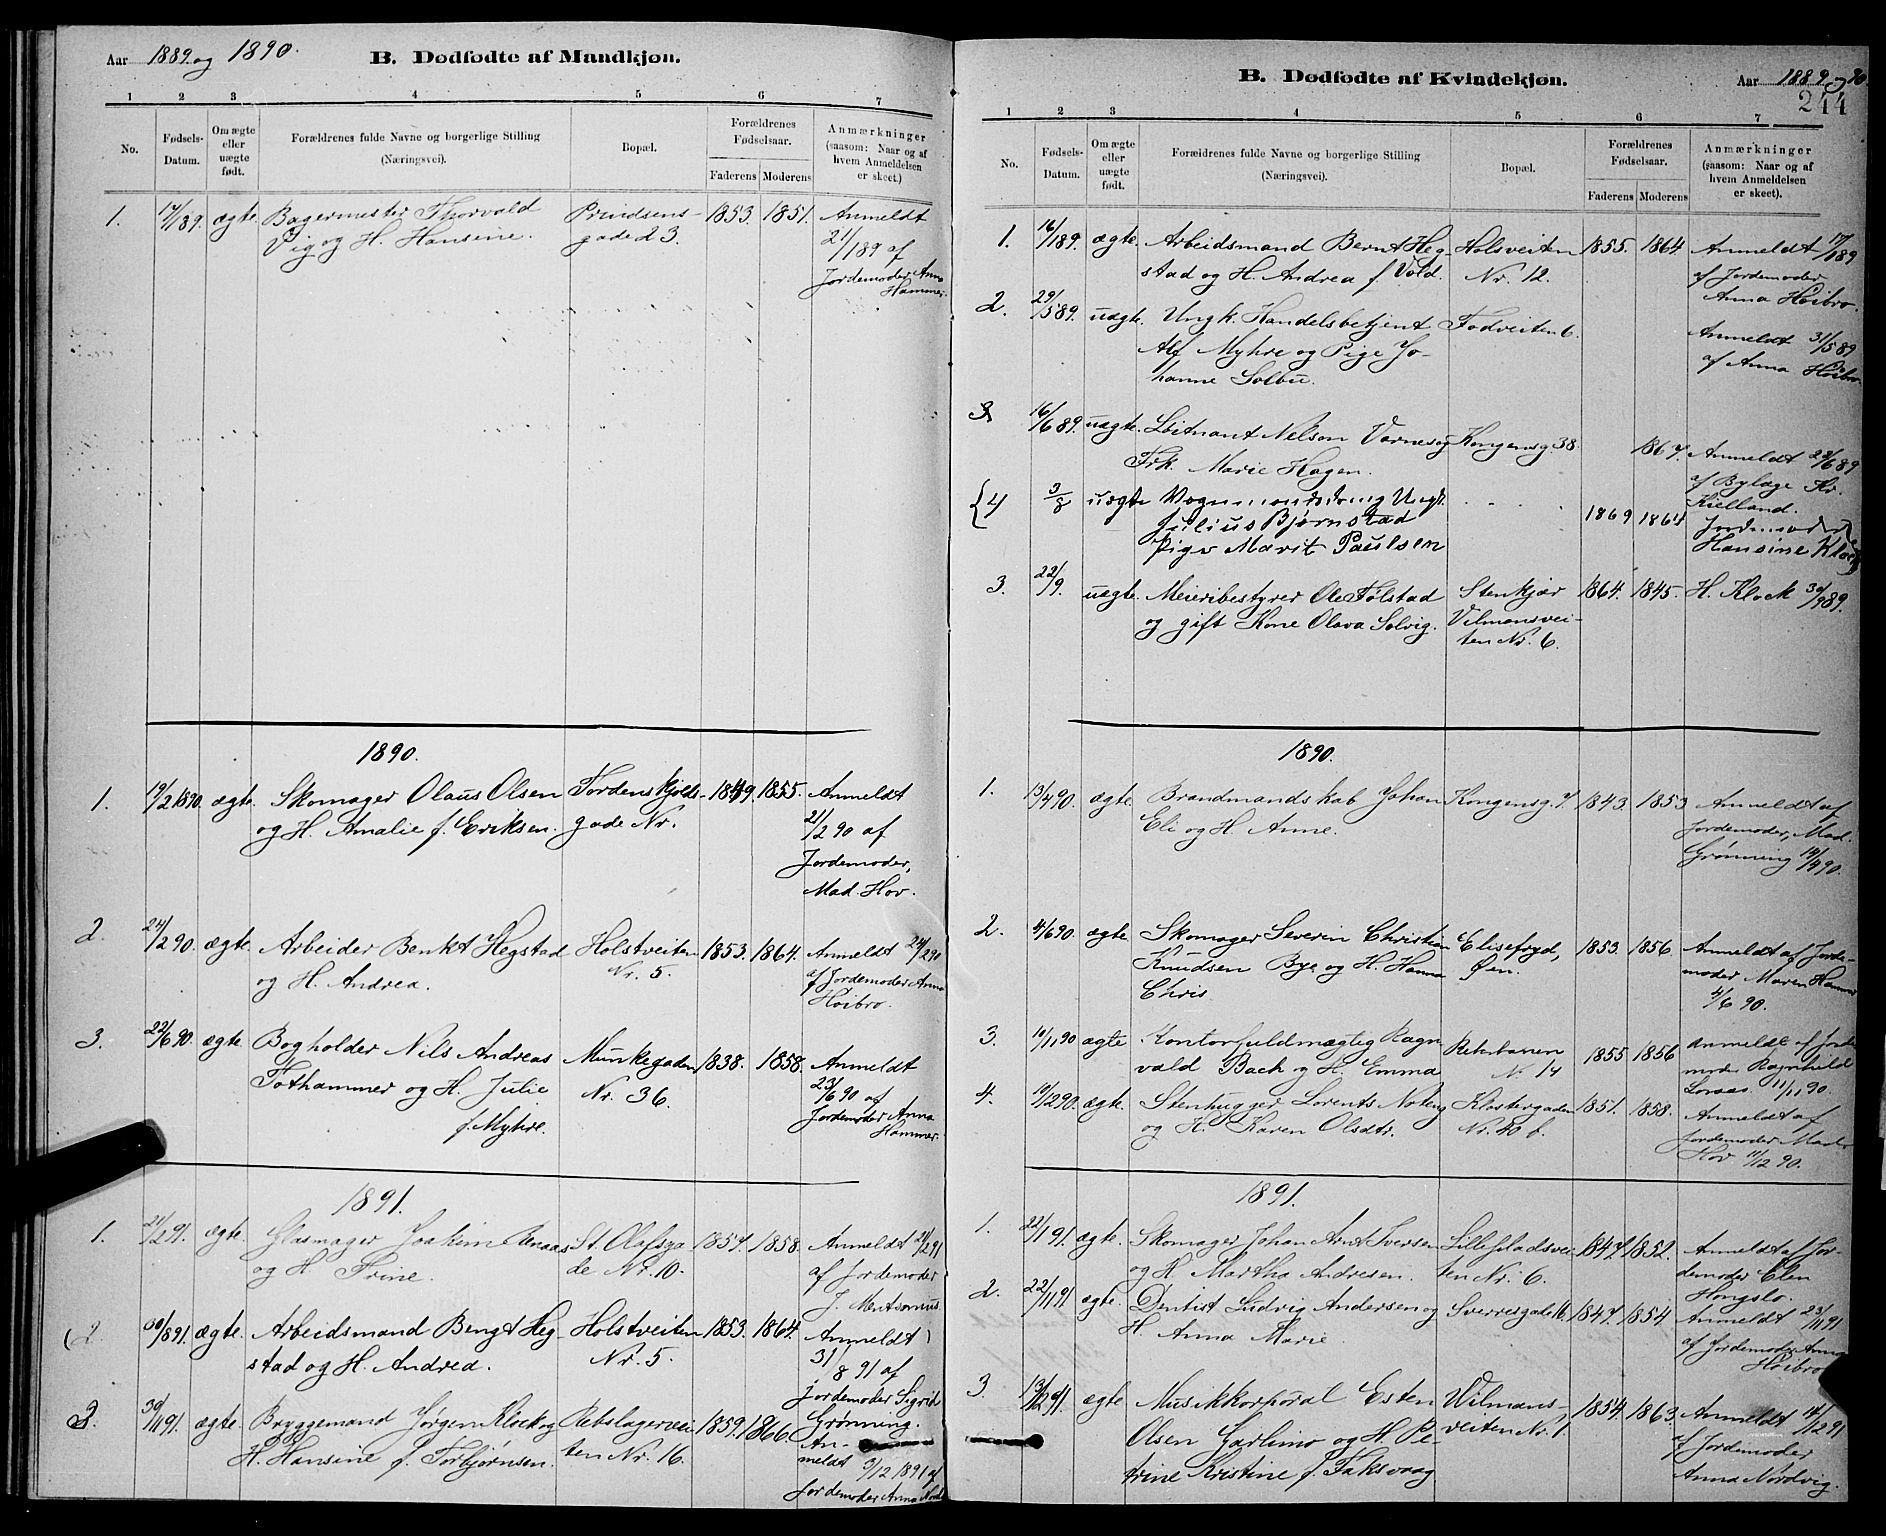 Aar 1889 og 1890.
B. Dødfødte af Mandkjøn.
1 2 3 4 5 6 7
No.
Fødsels-
Datum.
Om ægte
eller
uægte
født.
Forældrenes fulde Navne og borgerlige Stilling
(Næringsvei).
Bopæl.
Forældrenes
Fødselsaar.
Faderens Moderens
Anmærkninger
(saasom: Naar og af
hvem Anmeldelsen
er skeet.)
1. 17/1 89. ægte. Bagermester Thorvald Prindsens- 1853. 1851. Anmeldt
Vig og H. Hansine. gade 23. 21/1 89 af
Jordemoder Anna
Hammer.
1890.
1. 19/2 1890. ægte. Skomager Olaus Olsen Tordenskjolds- 1849. 1855. Anmeldt
og H. Amalie f. Eriksen. gade Nr. 21/2 90 af
Jordemoder,
Mad. Hov.
2. 24/2 90. ægte. Arbeider Benkt Hegstad Holstveiten 1853. 1864. Anmeldt 24/2 90
og H. Andrea. Nr. 5. af Jordemoder Anna
Høibro.
3. 22/6 90. ægte. Bogholder Nils Andreas Munkegaden 1838. 1858. Anmeldt
Tothammer og H. Julie Nr. 36. 23/6 90 af
f. Myhre. Jordemoder Anna
Hammer.
1891.
1. 21/2 91. ægte. Glasmager Joakim St. Olafsga- 1857. 1858. Anmeldt 21/2 91
og H. Trine. de Nr. 10. af Jordemoder
J.
30/8 91. ægte. Arbeidsmand Bengt Heg- Holstveiten 1853. 1864. Anmeldt
stad og H. Andrea. Nr. 5. 31/8 91 af
Jordemoder Sigrid
Grønning.
30/11 91. ægte. Bryggemand Jørgen Klock og Rebslagervei- 1859. 1866. An-
H. Hansine f. Torbjørnsen. ten Nr. 16. meldt
9/12 1891 af
Jordemoder Anna
B. Dødfødte af Kvindekjøn.
Aar 1889 og 90.
244
1 2 3 4 5 6 7
No.
Fødsels-
Datum.
Om ægte
eller
uægte
født.
Forældrenes fulde Navne og borgerlige Stilling
(Næringsvei).
Bopæl.
Forældrenes
Fødselsaar.
Faderens Moderens
Anmærkninger
(saasom: Naar og af
hvem Anmeldelsen
er skeet).
1. 16/1 89. ægte. Arbeidsmand Bernt Heg- Holsveiten 1855. 1864. Anmeldt 17/1 89
stad og H. Andrea f. Vold. Nr. 12. af Jordemoder
Anna Høibro.
2. 29/5 89. uægte. Ungk. Handelsbetjent Fodveiten 6. Anmeldt 31/5 89
Alf Myhre og Pige Jo- af Anna Høibro.
hanne Solbu.
3 16/6 89. uægte. Løitnant Nelson Vornes og Kongensg. 38. 1867. Anmeldt 22/6 89
Frk. Marie Hagen. af Bylæge Kr.
Kielland.
{4 3/8 uægte Vognmandsdreng Ungk. 1869 1864 Jordemoder
Julius Bjørnstad Hansine Klock}
Pige Marit Paulsen
3. 22/9. uægte. Meieribestyrer Ole Følstad Stenkjær 1864. 1845. H. Klock 30/9 89.
og gift Kone Olava Solvig. Vilmansvei-
ten Nr. 6.
1890.
1. 13/4 90. ægte. Brandmandskab Johan Kongensg. 7. 1843. 1853 Anmeldt af
Eli og H. Anne. Jordemoder, Mad.
Grønning 14/4 90.
2. 4/6 90. ægte Skomager Severin Christian Elisefryd, 1853. 1856. Anmeldt af Jorde-
Knudsen Bye og H. Hanna Øen. moder Maren Hammer
Chris. 4/6 90.
3. 10/11 90 ægte Kontorfuldmægtig Ragn Rebsbanen 1855 1856 Anmeldt af Jorde
vald Bach og H. Emma N. 14 moder Ragnhild
Loraas 11/11 90
4. 10/12 90. ægte. Stenhugger Lorents Noteng Klostergaden 1851. 1858. Anmeldt af
og H. Karen Olsdtr. Nr. 40 b. Jordemoder Mad.
Hov 11/12 90.
1891.
1. 22/1 91. ægte. Skomager Johan Arnt Iversen Lillefjladsvei- 1847. 1852. Anmeldt af Jor-
og H. Martha Andresen. ten Nr. 6. demoder Elen
Hongslo.
2. 22/11 91 ægte. Dentist Ludvig Andersen og Sverresgade 16. 1847. 1854 Anmeldt 23/11 91
H. Anna Marie af Jordemoder Anna
Høibro
3. 13/12 91. ægte Musikkorporal Esten Wilmans- 1854. 1863. Anmeldt 14/12 91
Olsen Garlimo og H. Pe- veiten Nr. 1. af Jordemoder
trine Kristine f. Faksvaag Anna Nordvig.